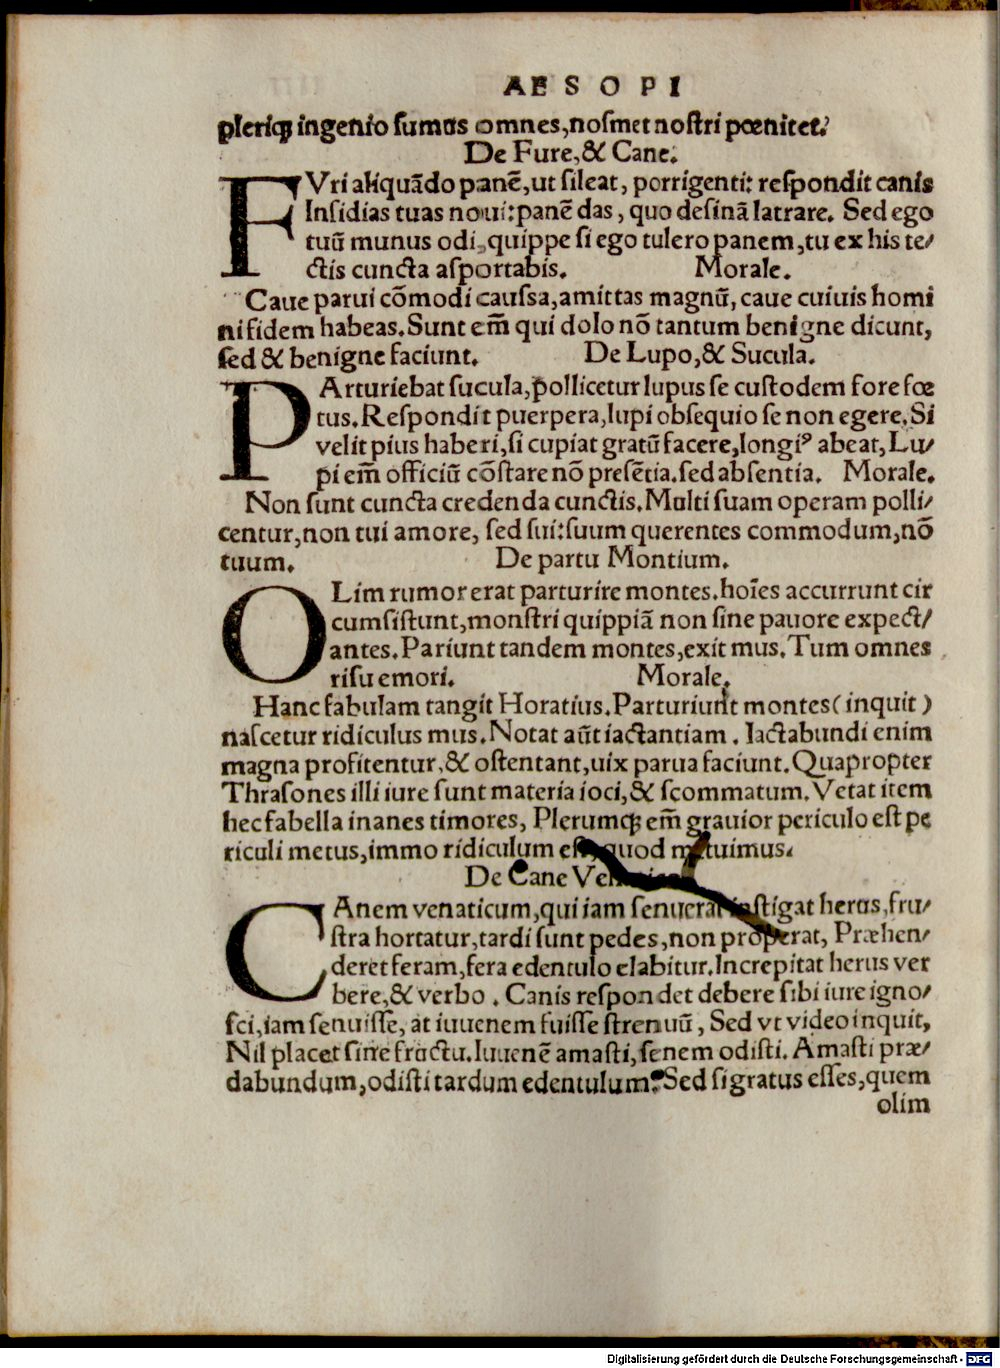 AESOPI
pleriqꝫ ingenio sumus omnes, nosmet nostri pœnitet.
De Fure, & Cane.
FVri aliquãdo panẽ, ut sileat, porrigenti: respondit canis
Insidias tuas noui: panẽ das, quo desinã latrare. Sed ego
tuũ munus odi, quippe si ego tulero panem, tu ex his te/
ctis cuncta asportabis. Morale.
Caue parui cõmodi caussa, amittas magnũ, caue cuiuis homi
ni fidem habeas. Sunt em̃ qui dolo nõ tantum benigne dicunt,
sed & benigne faciunt. De Lupo, & Sucula.
PArturiebat sucula, pollicetur lupus se custodem fore fœ
tus. Respondit puerpera, lupi obsequio se non egere. Si
velit pius haberi, si cupiat gratũ facere, longiꝰ abeat, Lu/
pi em̃ officiũ cõstare nõ presẽtia. sed absentia. Morale.
Non sunt cuncta credenda cunctis. Multi suam operam polli/
centur, non tui amore, sed sui: suum querentes commodum, nõ
tuum. De partu Montium.
OLim rumor erat parturire montes. hoĩes accurrunt cir
cumsistunt, monstri quippiã non sine pauore expect/
antes. Pariunt tandem montes, exit mus. Tum omnes
risu emori. Morale.
Hanc fabulam tangit Horatius. Parturiunt montes (inquit)
nascetur ridiculus mus. Notat aũt iactantiam. Iactabundi enim
magna profitentur, & ostentant, uix parua faciunt. Quapropter
Thrasones illi iure sunt materia ioci, & scommatum. Vetat item
hec fabella inanes timores, Plerumqꝫ em̃ grauior periculo est pe
riculi metus, immo ridiculum est, quod metuimus.
De Cane
CAnem venaticum, qui iam senuerat instigat herus, fru/
stra hortatur, tardi sunt pedes, non properat, Præhen/
deret feram, fera edentulo elabitur. Increpitat herus ver
bere, & verbo. Canis respondet debere sibi iure igno/
sci, iam senuisse, at iuuenem fuisse strenuũ, Sed vt video inquit,
Nil placet sine fructu. Iuuenẽ amasti, senem odisti. Amasti præ/
dabundum, odisti tardum edentulum. Sed si gratus esses, quem
olim
Digitalisierung gefördert durch die Deutsche Forschungsgemeinschaft - DFG